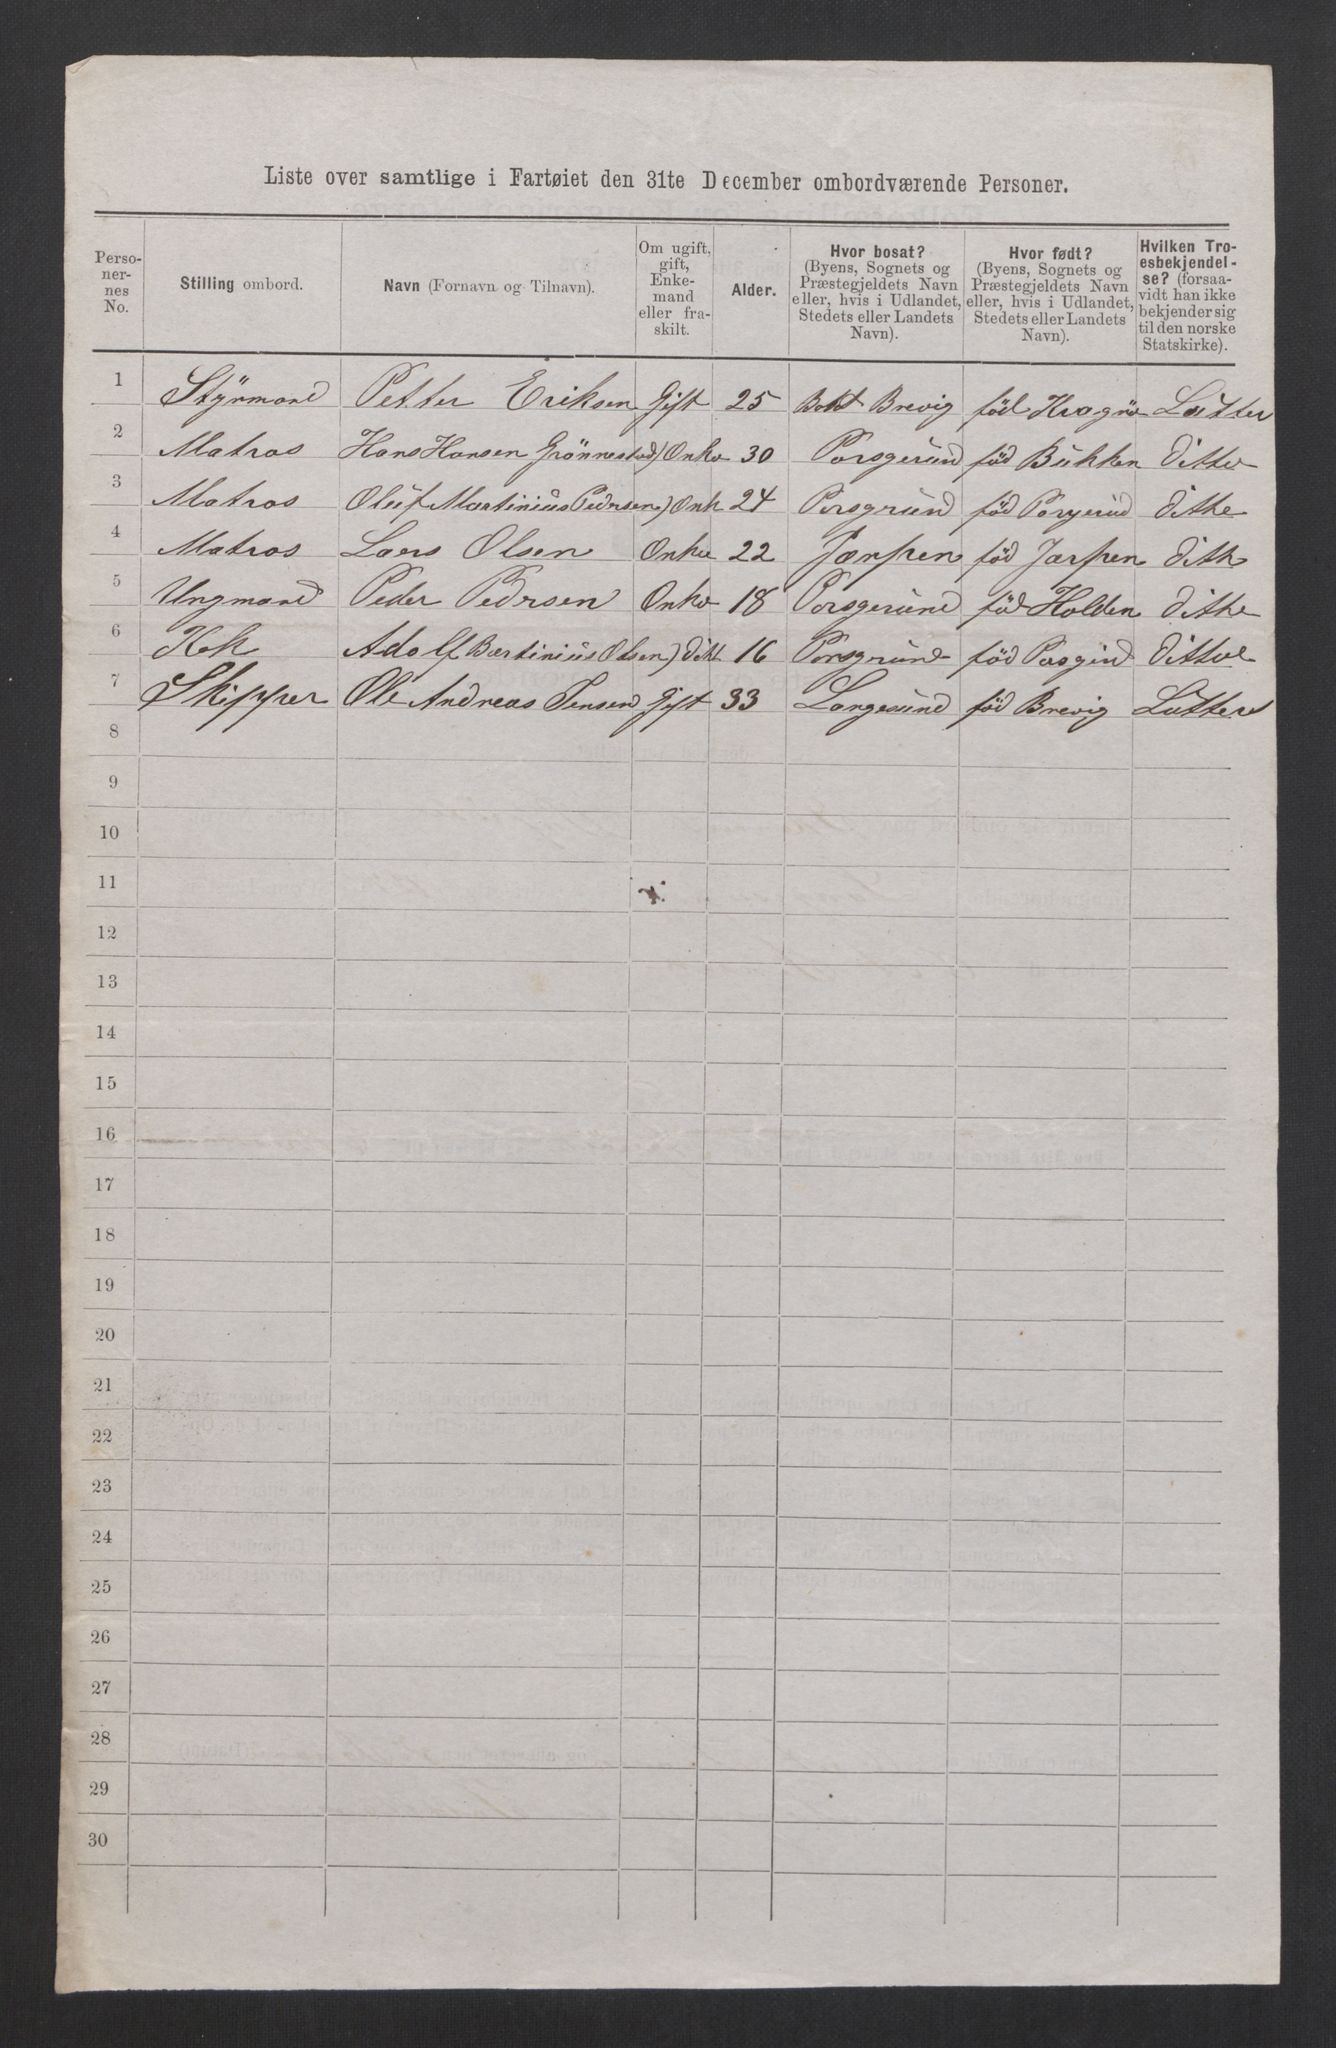 Liste over samtlige i Fartøiet den 31te December ombordværende Personer.
Perso-
ner-
nes
No.
Stilling ombord.
Navn (Fornavn og Tilnavn).
Om ugift,
gift,
Enke-
mand
eller fra-
skilt.
Alder.
Hvor bosat?
(Byens, Sognets og
Præstegjeldets Navn
eller, hvis i Udlandet,
Stedets eller Landets
Navn).
Hvor født?
(Byens, Sognets og
Præstegjeldets Navn
eller, hvis i Udlandet,
Stedets eller Landets
Navn).
Hvilken Tro-
esbekjendel-
se? (forsaa-
vidt han ikke
bekjender sig
til den norske
Statskirke).
1 Styrmand Petter Eriksen Gift 25 Brevig föd Kragrö Lutter
2 Matros Hans Hansen Grönnestad) Onke 30 Porsgerund föd Bukken ditto
3 Matros Oluf Martinius Pedrsen) Onk 24 Porsgrund föd Porgerud ditke
4 Matros Laers Olsen Onke 22 Jarpen föd Jarpen dith
5 Ungmand Peder Pedrsen Onke 18 Porsgerund föd Holden ditke
6 Kok Adolf Bertinius Olsen) ditt 16 Porsgrund föd Posgind dittoe
7 Skipper Ole Andreas Jensen Gift 33 Langesund föd Brevig Lutters
8
9
10
11
12
13
14
15
16
17
18
19
20
21
22
23
24
25
26
27
28
29
30